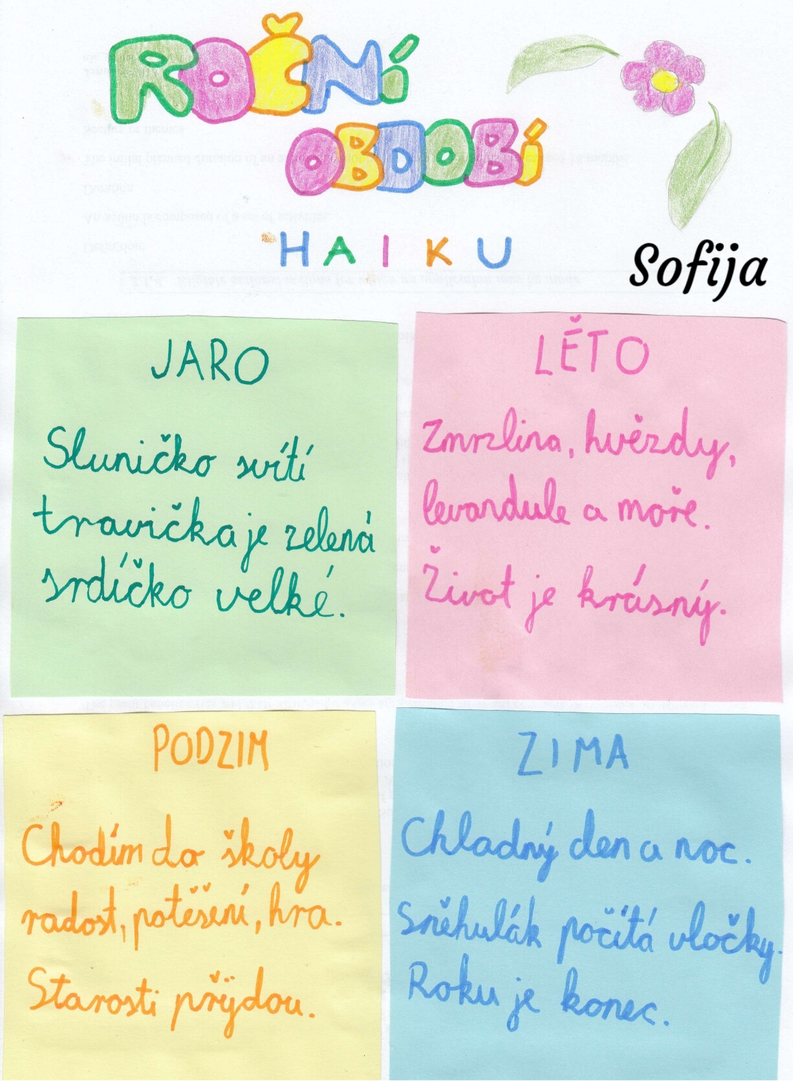 ROČNÍ
OBDOBÍ
HAIKU
Sofija
JARO
Sluničko svítí
travička je zelená
srdíčko velké.
LÉTO
Zmrzlina, hvězdy,
levandule a moře.
Život je krásný.
PODZIM
Chodím do školy
radost, potěšení, hra.
Starosti přijdou.
ZIMA
Chladný den a noc.
Sněhulák počítá vločky.
Roku je konec.